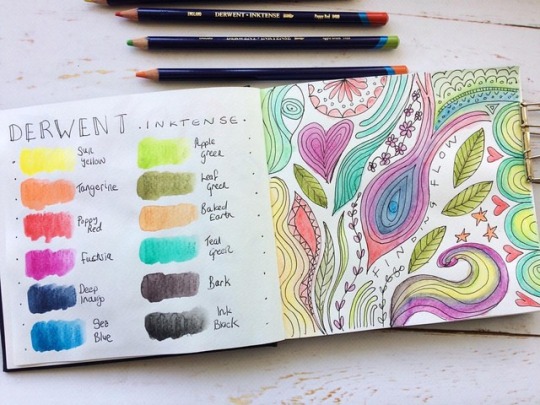 DERWENT · INKTENSE
Poppy Red
DERWENT · INKTENSE
DERWENT · INKTENSE
DERWENT · INKTENSE.
Sun
Yellow
Tangerine
Poppy
Red
Fuchsia
Deep
Indigo
Sea
Blue
Apple
Green
Leaf
Green
Baked
Earth
Teal
Green
Bark
Ink
Black
FINDING FLOW